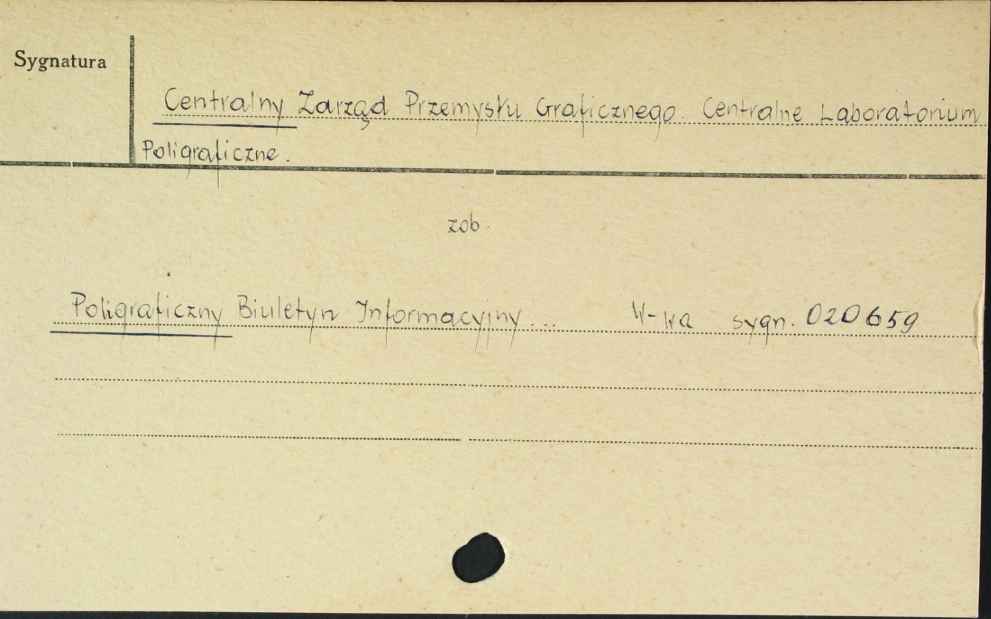 Sygnatura
Centralny Zarząd Przemysłu Graficznego. Centralne Laboratorium
Poligraficzne.
zob.
Poligraficzny Biuletyn Informacyjny... W-wa sygn. 020659